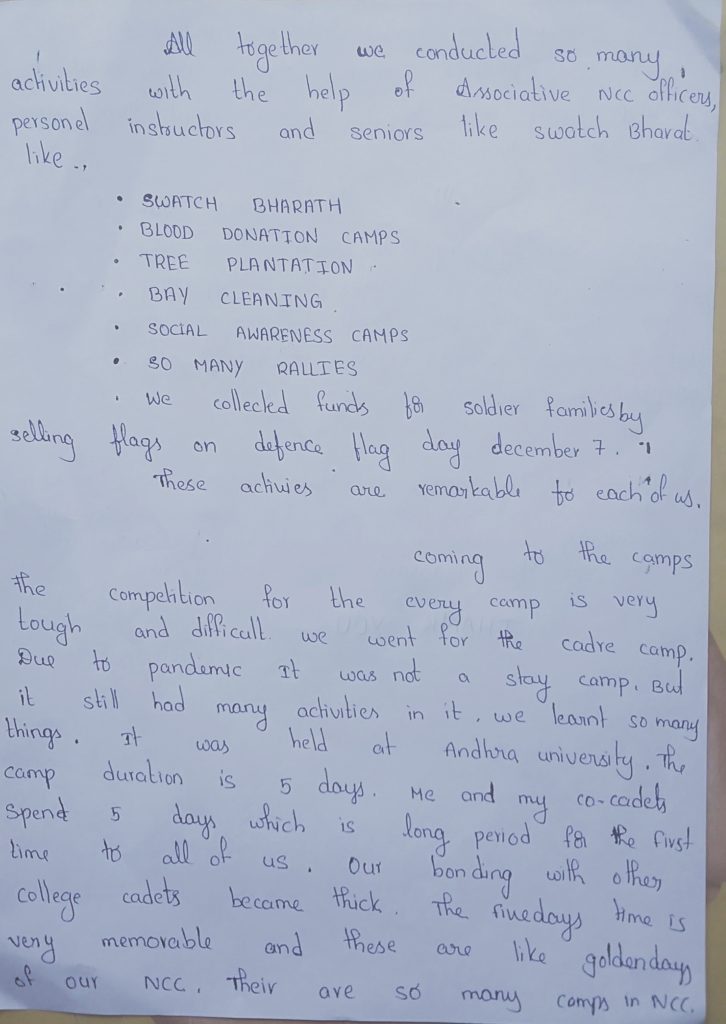 All together we conducted so many
activities with the help of Associative NCC officers,
personel instructors and seniors like swatch Bharat.
like .,
• SWATCH BHARATH
• BLOOD DONATION CAMPS
• TREE PLANTATION
• BAY CLEANING
• SOCIAL AWARENESS CAMPS
• SO MANY RALLIES
• We collected funds for soldier families by
selling flags on defence flag day december 7.
These activies are remarkable to each of us.
coming to the camps
the competition for the every camp is very
tough and difficult. we went for the cadre camp.
Due to pandemic It was not a stay camp. But
it still had many activities in it. we learnt so many
things. It was held at Andhra university. The
camp duration is 5 days. Me and my co-cadets
Spend 5 days which is long period for the first
time to all of us. Our bonding with other
college cadets became thick. The fivedays time is
very memorable and these are like goldendays
of our NCC. Their are so many camps in NCC.